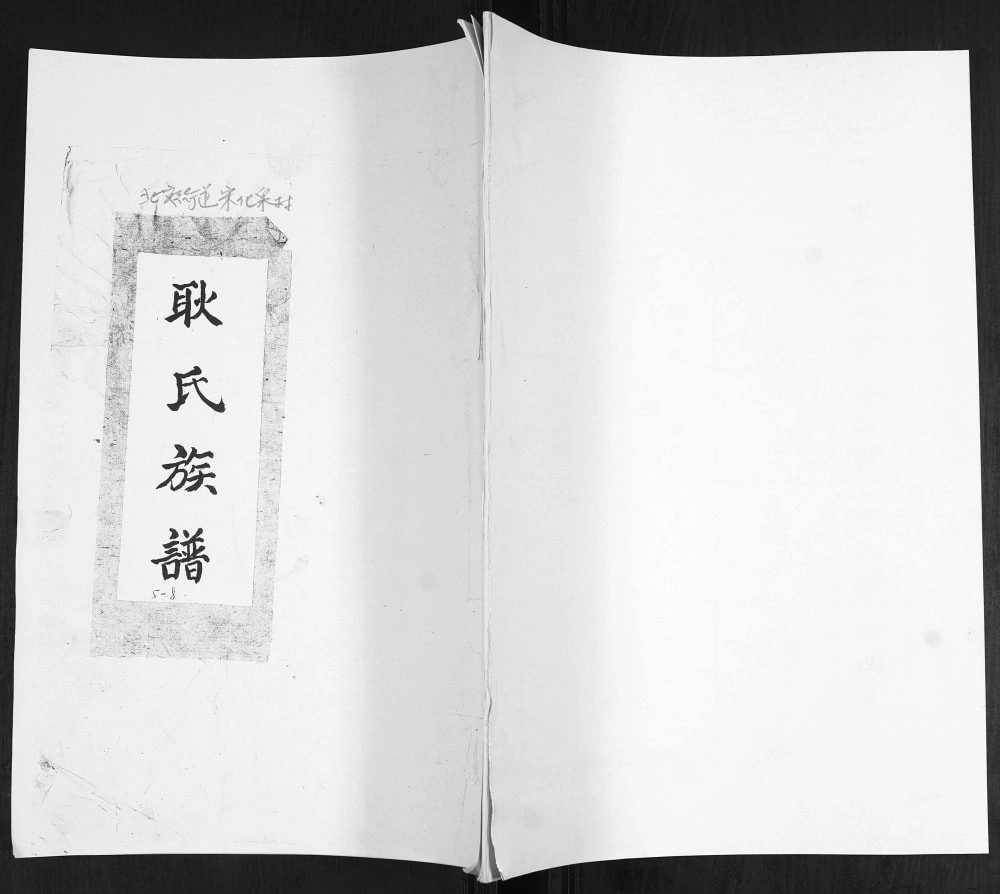 北安街道宋化泉村
耿氏族譜
5-8.